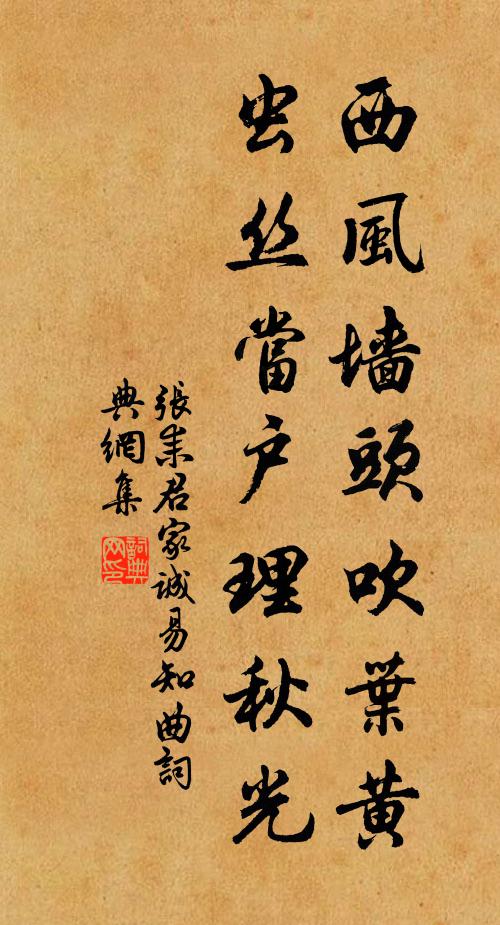 西風墻頭吹葉黄
虫丝當户理秋光
張耒君家誠易知曲詞
典網集
詞典
网印